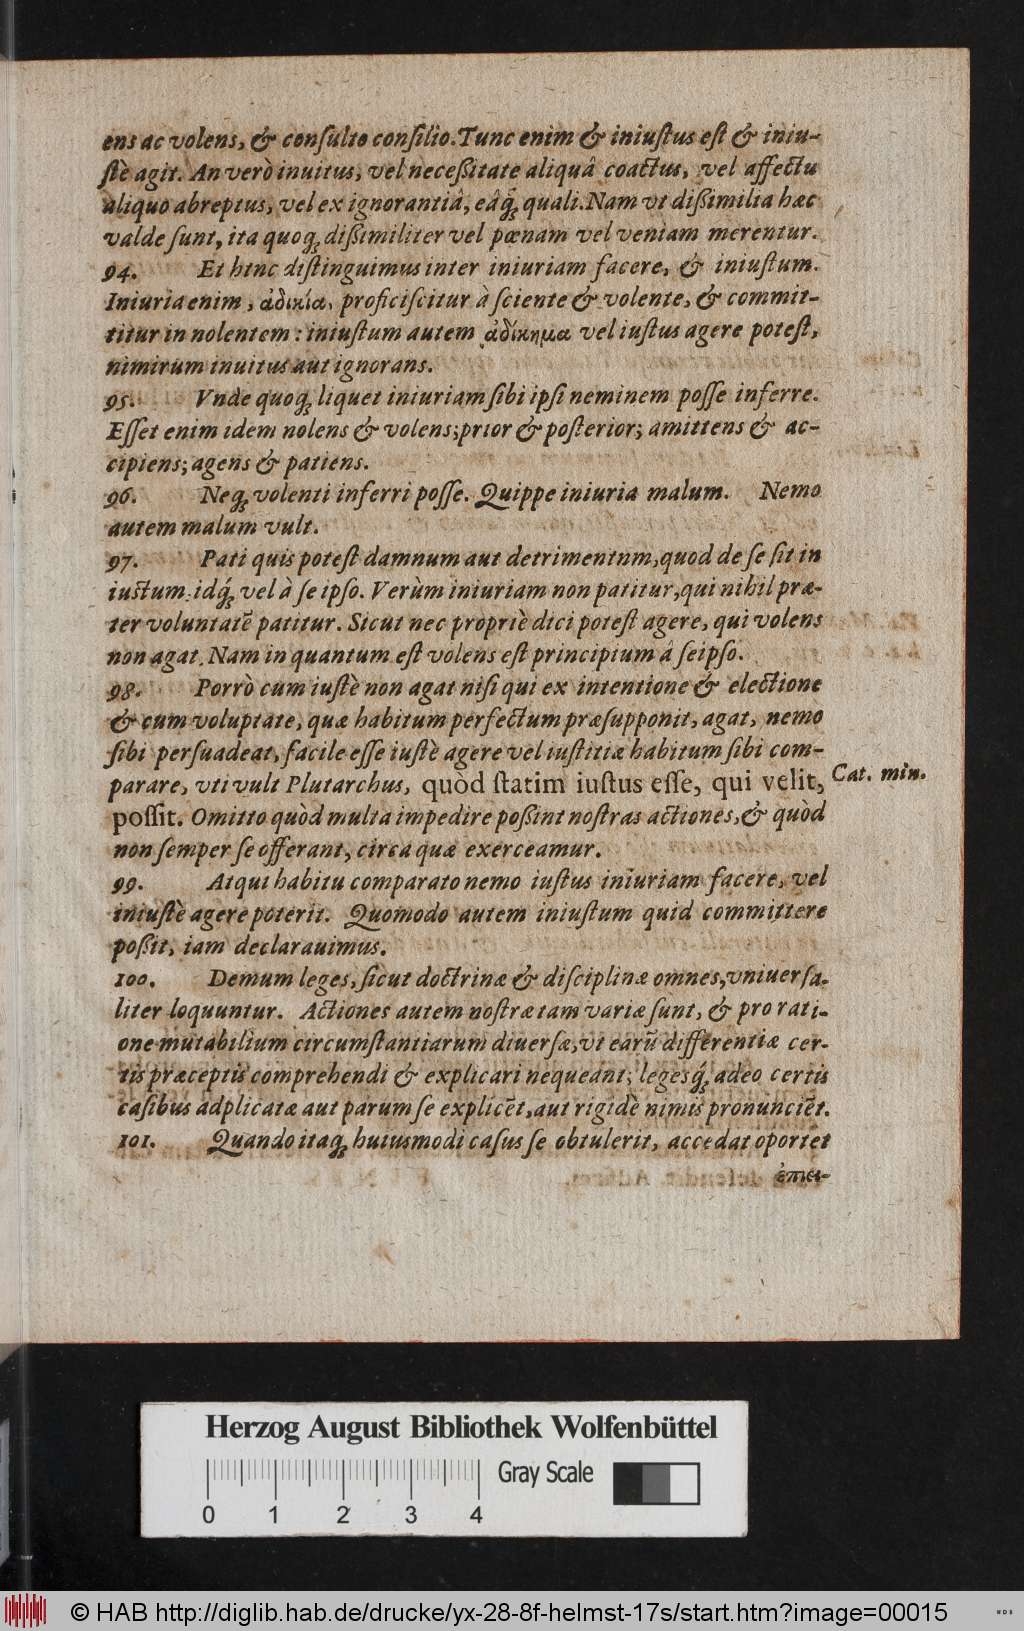 ens ac volens, & consulto consilio. Tunc enim & iniustus est & iniu-
stè agit. An verò inuitus, vel necessitate aliquâ coactus, vel affectu
aliquo abreptus, vel ex ignorantiâ, eâq́; quali. Nam vt dissimilia hæc
valde sunt, ita quoq; dissimiliter vel pœnam vel veniam merentur.
94. Et hinc distinguimus inter iniuriam facere, & iniustum.
Iniuria enim, ἀδικία, proficiscitur à sciente & volente, & commit-
titur in nolentem: iniustum autem ἀδίκημα vel iustus agere potest,
nimirum inuitus aut ignorans.
95. Vnde quoq; liquet iniuriam sibi ipsi neminem posse inferre.
Esset enim idem nolens & volens; prior & posterior; amittens & ac-
cipiens; agens & patiens.
96. Neq; volenti inferri posse. Quippe iniuria malum. Nemo
autem malum vult.
97. Pati quis potest damnum aut detrimentnm, quod de se sit in
iustum: idq́; vel à se ipso. Verùm iniuriam non patitur, qui nihil præ-
ter voluntatē patitur. Sicut nec propriè dici potest agere, qui volens
non agat. Nam in quantum est volens est principium á seipso.
98. Porrò cum iustè non agat nisi qui ex intentione & electione
& cum voluptate, quæ habitum perfectum præsupponit, agat, nemo
sibi persuadeat, facile esse iustè agere vel iustitiæ habitum sibi com-
parare, vti vult Plutarchus, quòd statim iustus esse, qui velit, Cat. min.
possit. Omitto quòd multa impedire possint nostras actiones, & quòd
non semper se offerant, circa quæ exerceamur.
99. Atqui habitu comparato nemo iustus iniuriam facere, vel
iniustè agere poterit. Quomodo autem iniustum quid committere
possit, iam declarauimus.
100. Demum leges, sicut doctrinæ & disciplinæ omnes, vniuersa-
liter loquuntur. Actiones autem nostræ tam variæ sunt, & pro rati-
one mutabilium circumstantiarum diuersæ, vt earū differentiæ cer-
tis præceptis comprehendi & explicari nequeant; legesq́; adeo certis
casibus adplicatæ aut parum se explicēt, aut rigidè nimis pronunciēt.
101. Quando itaq; huiusmodi casus se obtulerit, accedat oportet
ἐπιει-
Herzog August Bibliothek Wolfenbüttel
Gray Scale
0 1 2 3 4
© HAB http://diglib.hab.de/drucke/yx-28-8f-helmst-17s/start.htm?image=00015